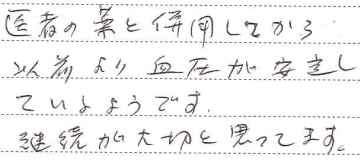 医者の薬と併用してから
以前より血圧が安定し
ているようです。
継続が大切と思ってます。